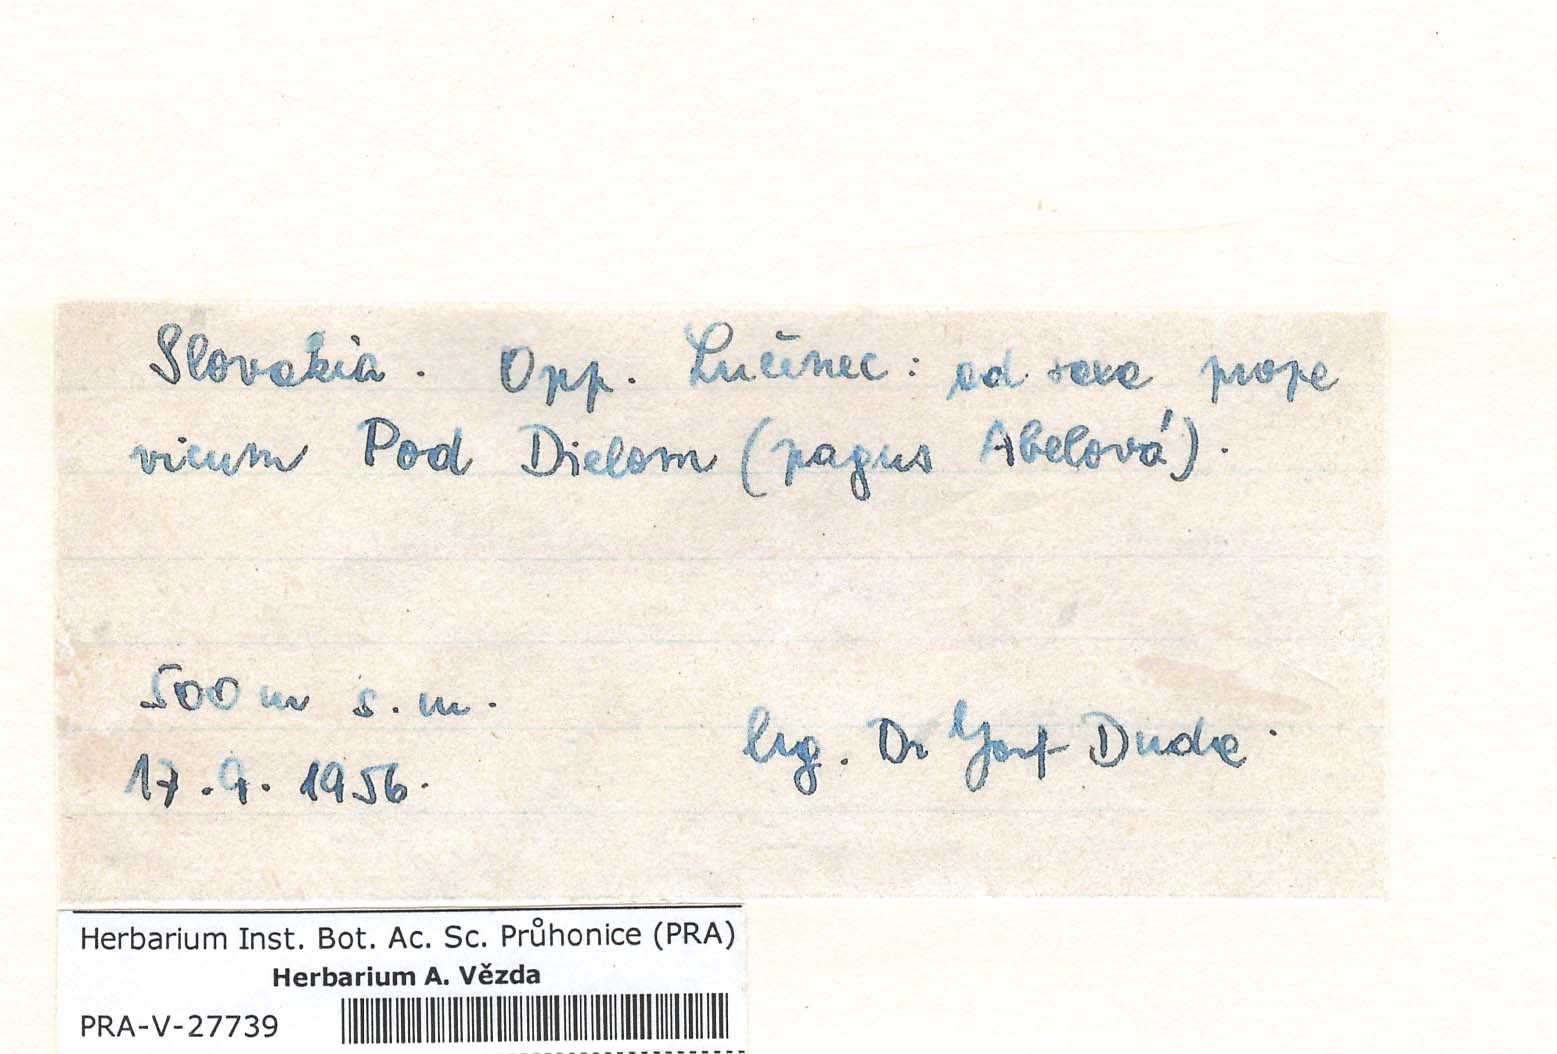 Slovakia. Opp. Lučenec: ad saxa prope
vicum Pod Dielom (pagus Abelová).
500 m s. m.
17. 9. 1956.
Ing. Dr Josef Duda.
Herbarium Inst. Bot. Ac. Sc. Průhonice (PRA)
Herbarium A. Vězda
PRA-V-27739